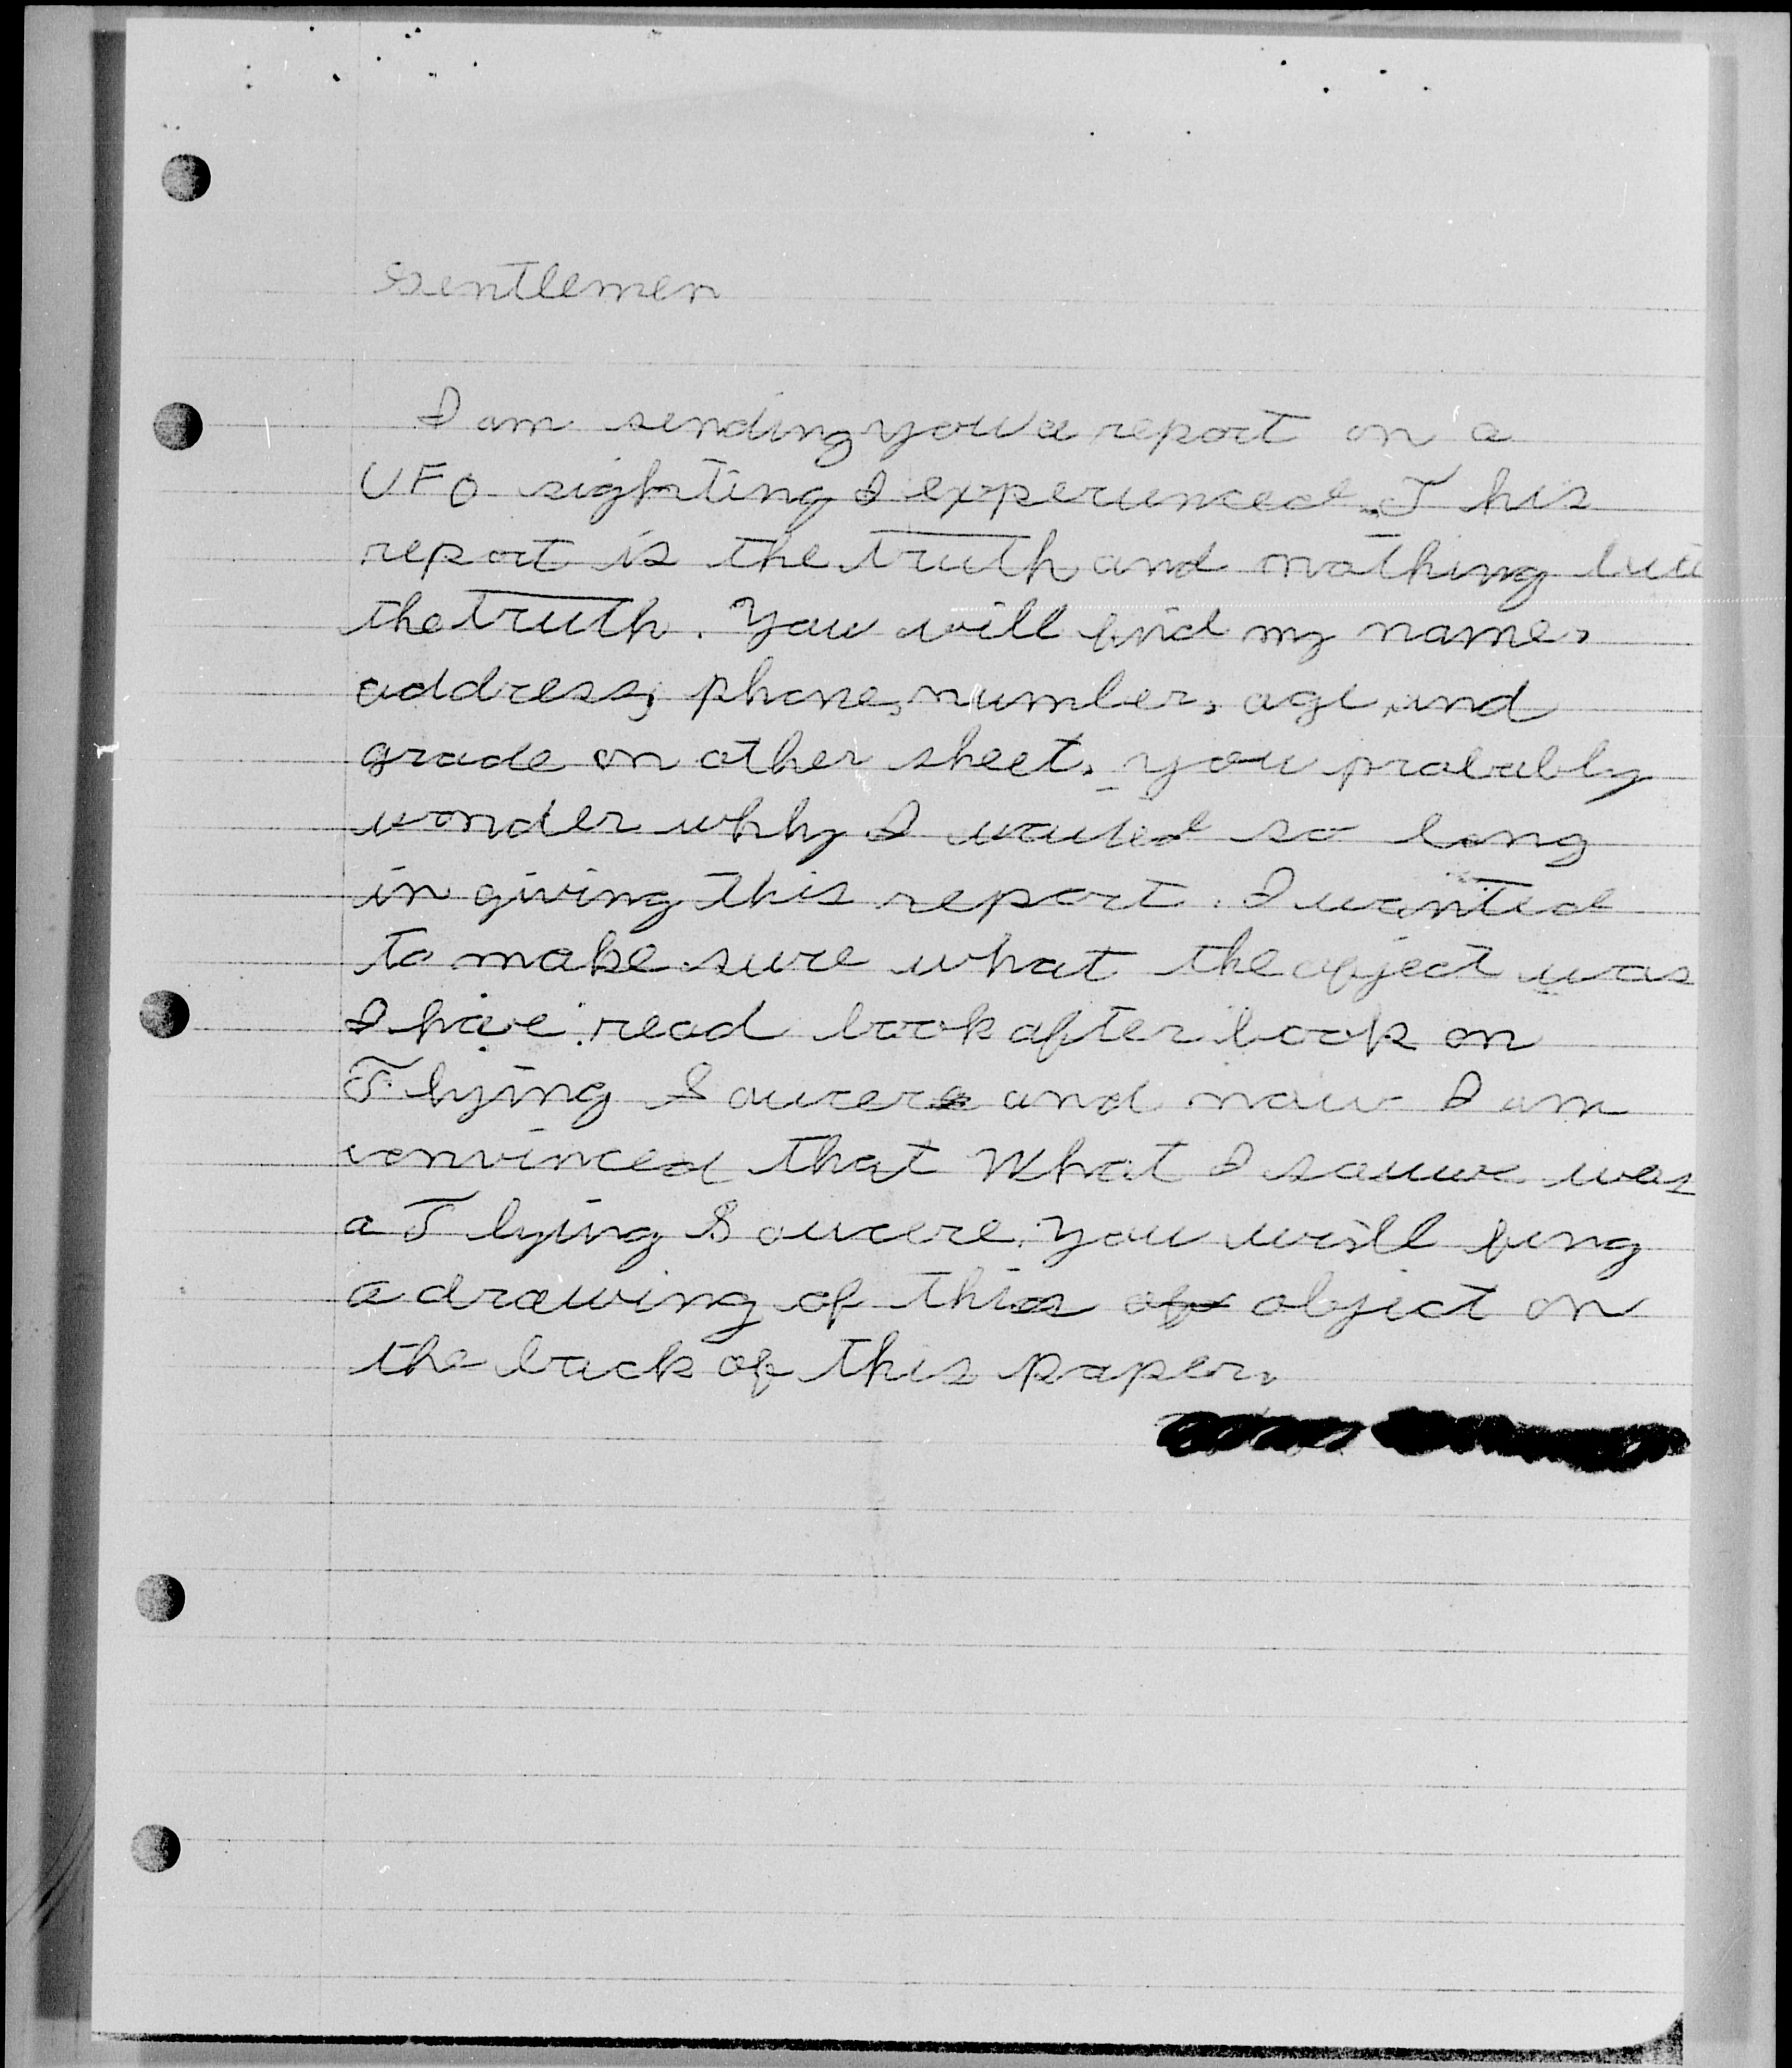 Gentlemen
I am sending you a report on a
UFO sighting I experienced. This
report is the truth and nothing but
the truth. You will find my name,
address, phone, number, age, and
grade on other sheet. you probably
wonder why I waited so long
in giving this report. I wanted
to make sure what the opject was
I have read book after book on
Flying Saucers and now I am
convinced that What I sauw was
a Flying Soucere. you will fing
a drawing of this of object on
the back of this paper.